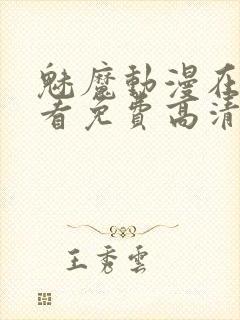 魅魔動漫在
看免費高清
王秀雲